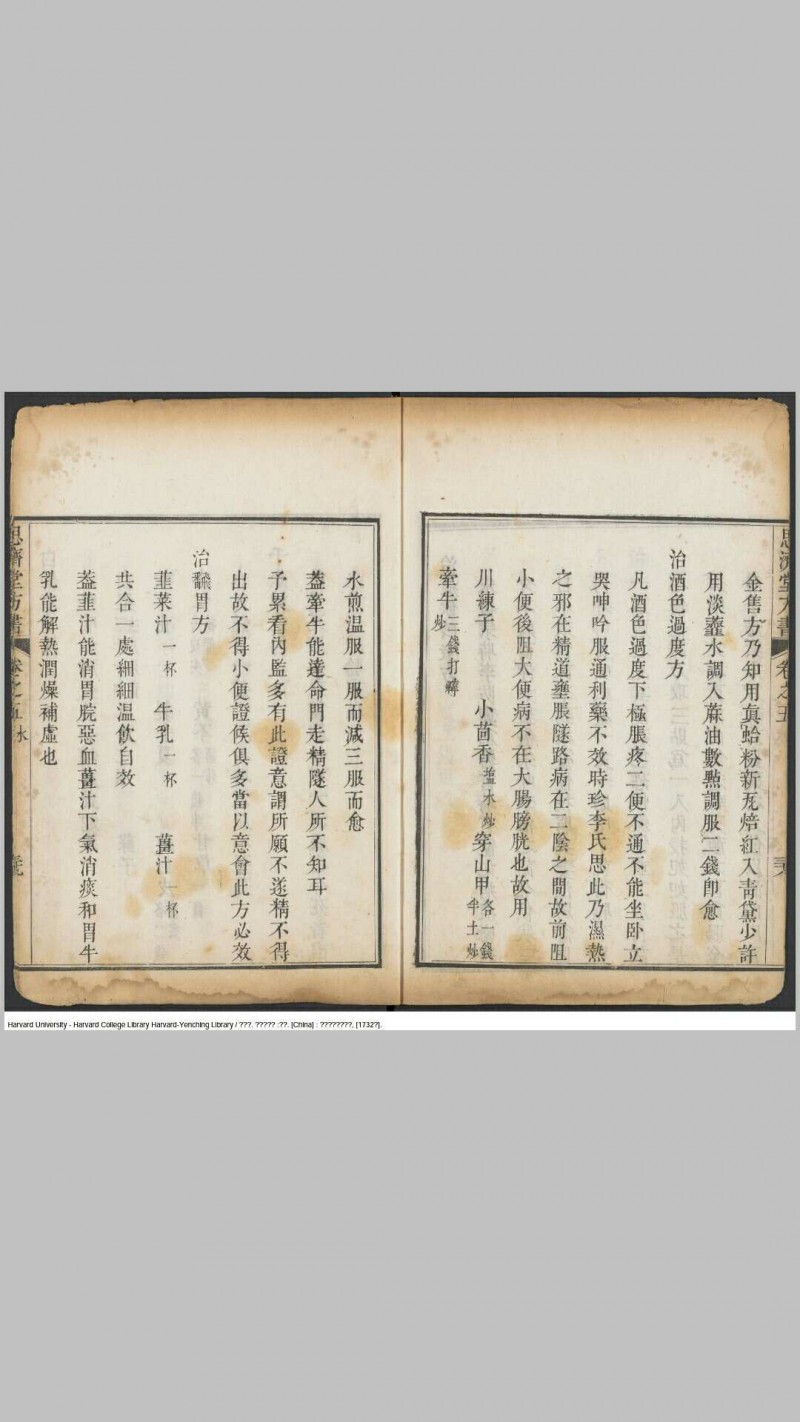 金售方乃知用真蛤粉新瓦焙紅入青黛少許
用淡虀水調入蔴油數點調服二錢卽愈
治酒色過度方
凡酒色過度下極脹疼二便不通不能坐卧立
哭呻吟服通利藥不效時珍李氏思此乃濕熱
之邪在精道壅脹隧路病在二陰之間故前阻
小便後阻大便病不在大腸膀胱也故用
川練子 小茴香塩水炒 穿山甲各一錢半土炒
牽牛三錢打碎炒
水煎温服一服而減三服而愈
葢牽牛能達命門走精隧人所不知耳
予累看內監多有此證意謂所願不遂精不得
出故不得小便證候俱多當以意會此方必效
治飜胃方
韮菜汁一杯 牛乳一杯 薑汁一杯
共合一處細細温飲自效
葢韮汁能消胃脘惡血薑汁下氣消痰和胃牛
乳能解熱潤燥補虛也
思濟堂方書 卷之五
Harvard University - Harvard College Library Harvard-Yenching Library / ???. ????? :??. [China] : ????????, [1732?].